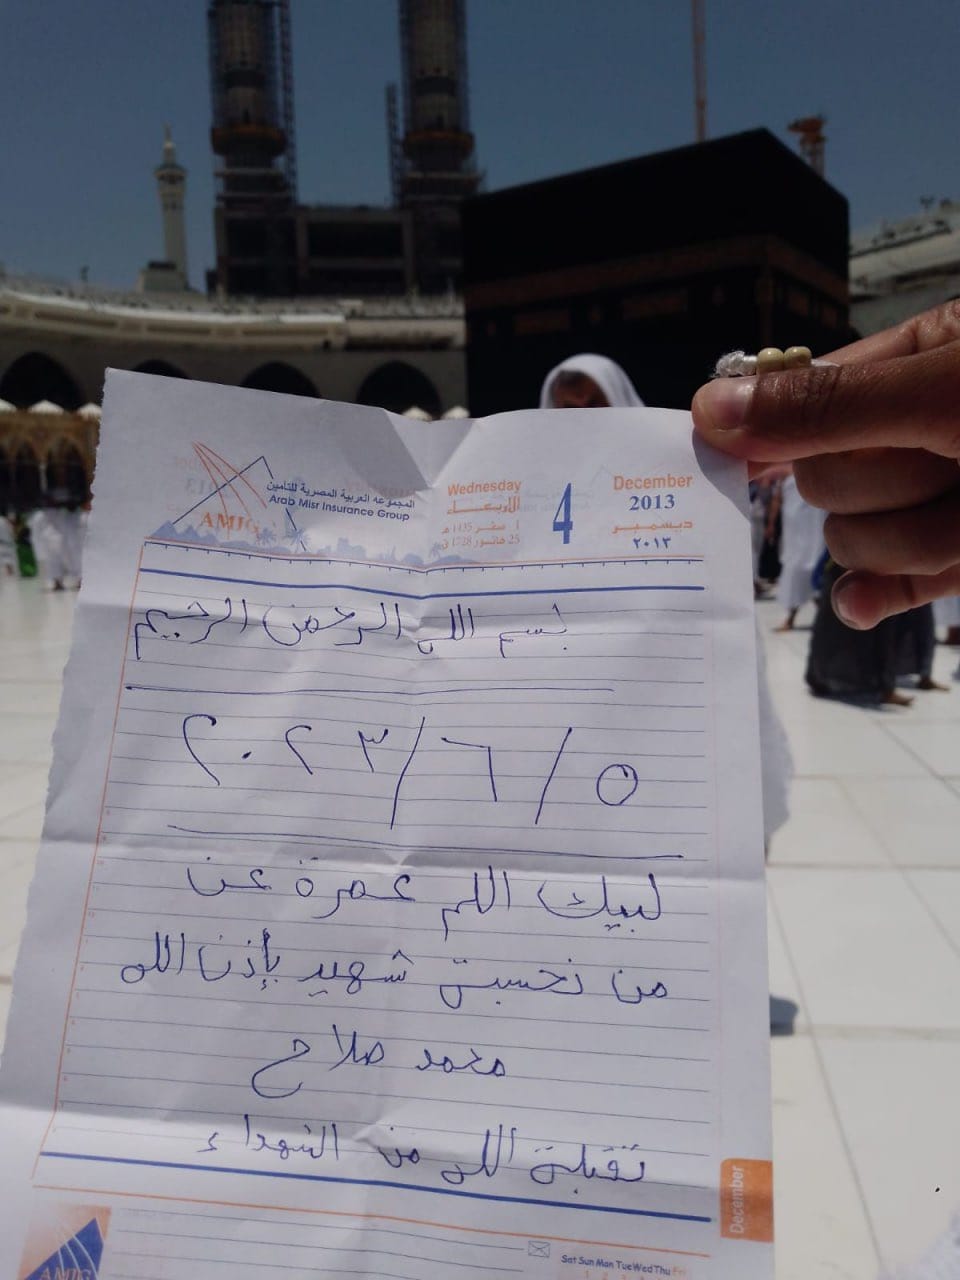 المجموعه العربية المصرية للتأمين
Arab Misr Insurance Group
AMIG
Wednesday
الأربعاء
1 صفر 1435 هـ
4
December
2013
ديسمبر
٢٠١٣
بسم الله الرحمن الرحيم
٢٠٢٣/٦/٥
لبيك اللهم عمرة عن
من نحسبة شهيد بإذن الله
محمد صلاح
تقبلة الله من الشهداء
December
AMIG
Sat Sun Mon Tue Wed Thu Fri